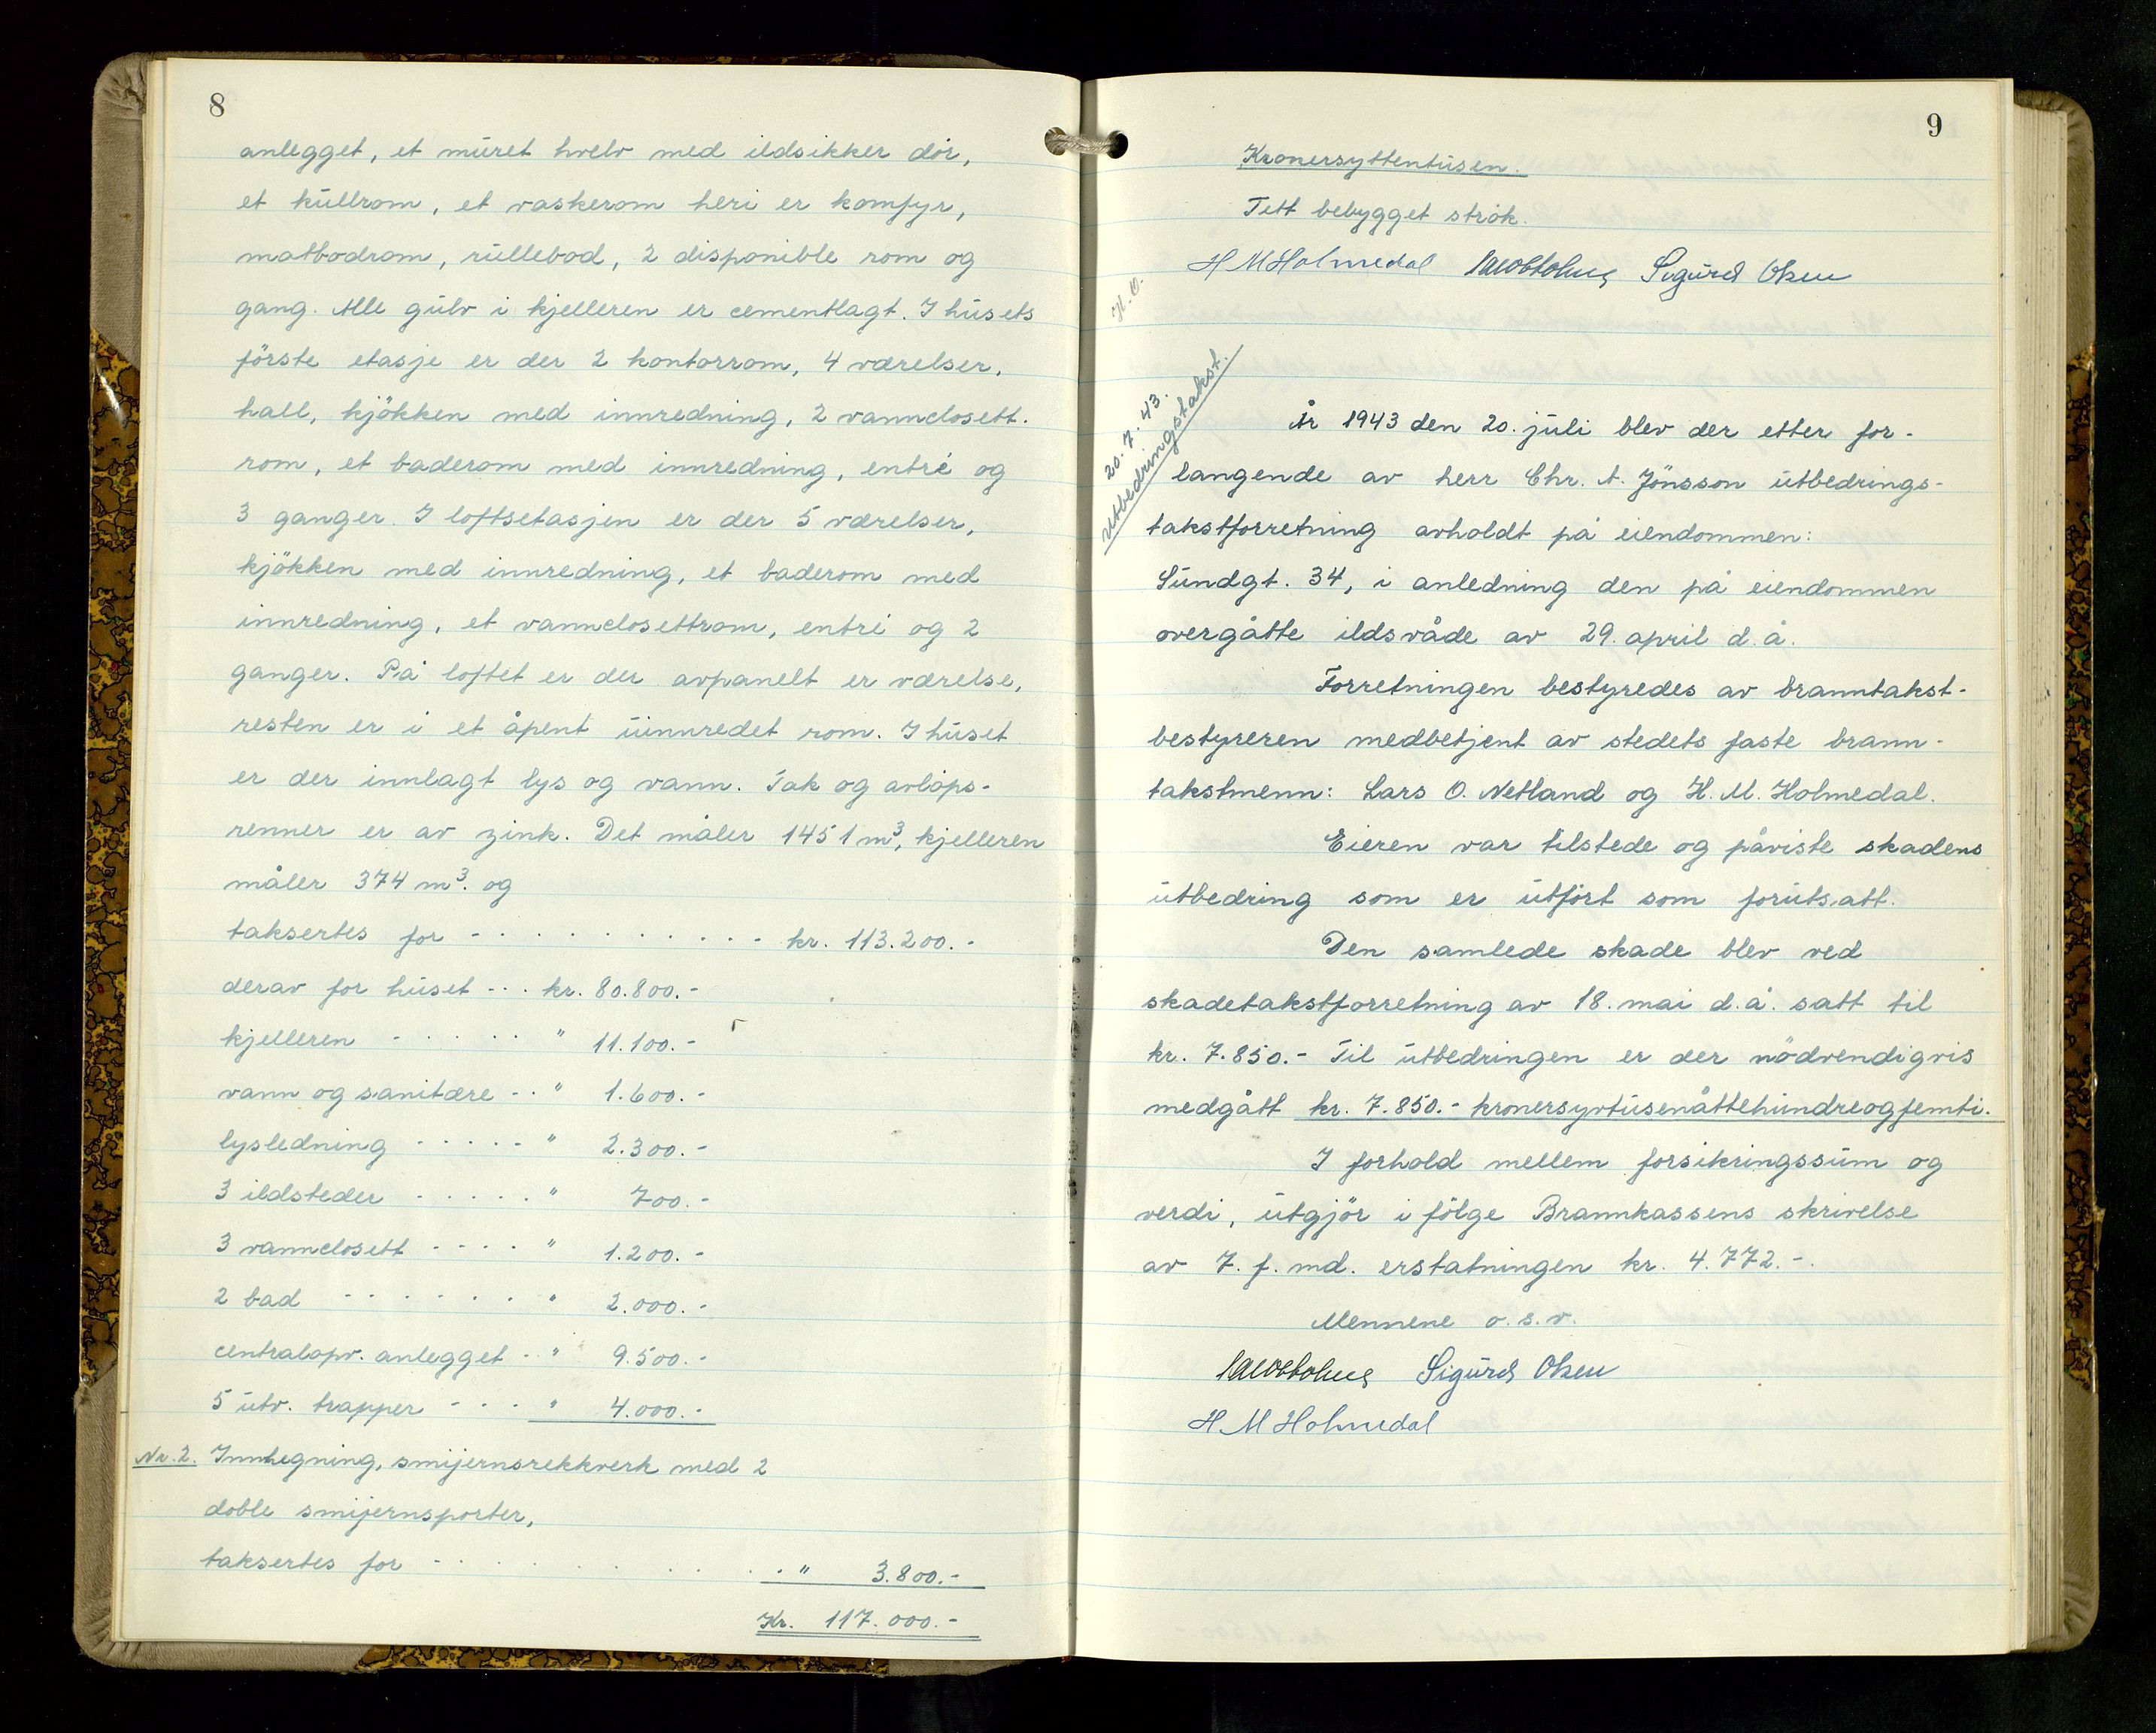 8
anlegget, et muret hvelv med ildsikker dör,
et kullrom, et vaskerom heri er komfyr,
matbodrom, rullebod, 2 disponible rom og
gang. Alle gulv i kjelleren er cementlagt. I husets
förste etasje er der 2 kontorrom, 4 værelser,
hall, kjökken med innredning, 2 vannclosett-
rom, et baderom med innredning, entré og
3 ganger. I loftsetasjen er der 5 værelser,
kjökken med innredning, et baderom med
innredning, et vannclosettrom, entré og 2
ganger. På loftet er der avpanelt er værelse,
resten er i et åpent uinnredet rom. I huset
er der innlagt lys og vann. Tak og avlöps-
renner er av zink. Det måler 1451 m³, kjelleren
måler 374 m³. og
taksertes for - - - - - - - - - - - kr. 113.200.-
derav for huset - - - kr. 80.800.-
kjelleren - - - - - - " 11.100.-
vann og sanitære - - " 1.600.-
lysledning - - - - - " 2.300.-
3 ildsteder - - - - - " 700.-
3 vannclosett - - - - " 1.200.-
2 bad - - - - - - " 2.000.-
centralopv. anlegget - - " 9.500.-
5 utv. trapper - - - " 4.000.-
Nr. 2. Innhegning, smijernsrekkverk med 2
doble smijernsporter,
taksertes for - - - - - - - - " 3.800.-
Kr. 117.000.-
9
Kronersyttentusen.
Tett bebygget strök.
H M Holmedal Sigurd Olsen
H. O.
20.7.43.
Utbedringstakst.
År 1943 den 20. juli blev der etter for-
langende av herr Chr. A. Jönsson utbedrings-
takstforretning avholdt på eiendommen:
Sundgt. 34, i anledning den på eiendommen
overgåtte ildsvåde av 29. april d.å.
Forretningen bestyredes av branntakst-
bestyreren medbetjent av stedets faste brann-
takstmenn: Lars O. Netland og H. M. Holmedal.
Eieren var tilstede og påviste skadens
utbedring som er utfört som forutsatt.
Den samlede skade blev ved
skadetakstforretning av 18. mai d.å. satt til
kr. 7.850.- Til utbedringen er der nödvendigvis
medgått kr. 7.850.- kronersyvtusenåttehundreogfemti.
I forhold mellem forsikringssum og
verdi, utgjör i fölge Brannkassens skrivelse
av 7. f. md. erstatningen kr. 4.772.-.
Mennene o.s.v.
Sigurd Olsen
H M Holmedal